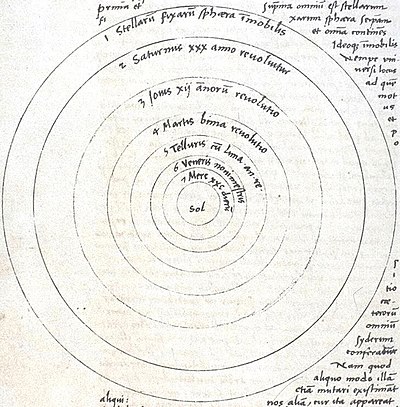 prima et sup̄ma omniū est stellarum
fi xarum sphæra seipam
et omīa continēs
Ideoq; īmobilis
Nempe vni
versi locus
ad quē
mot
us
et
p
o
1 Stellarū fixarū sphæra īmobilis
2 Saturnus xxx anno reuoluitur
3 Iouis xij añorū reuolutio
4 Martis bima reuolutio
5 Telluris cū Luna an. re.
6 Veneris nonimestris
7 Merc xxc dierū
Sol
tio
cæ-
terorū
omniū
syderum
conferatur
Nam quod
aliquo modo illā
etiā mutari existimāt
aliqui: nos aliā, cur ita appareat